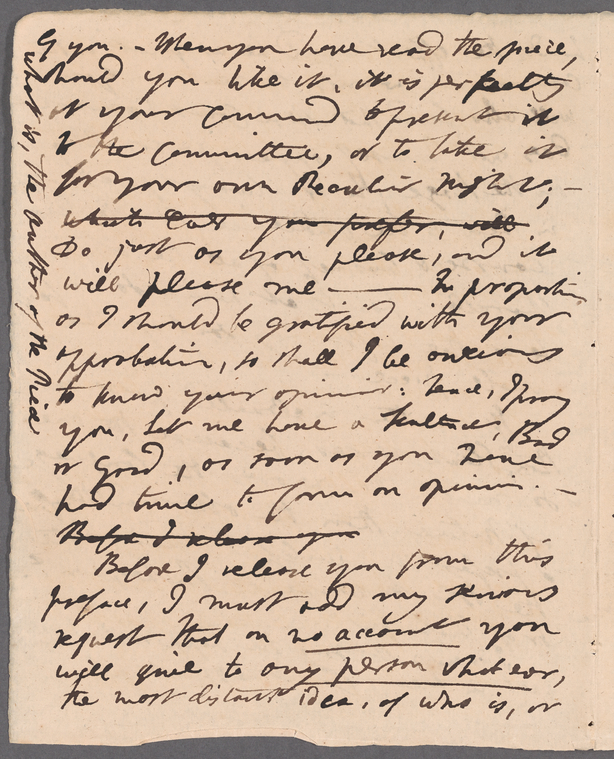 you. - When you have read the piece,
should you like it, it is perfectly
at your command to present it
to the Committee, or to take it
for your own Peculiar Night; -
~~which Ever you prefer, will~~
Do just as you please, and it
will please me —— In proportion
as I should be gratified with your
approbation, so shall I be anxious
to know your opinion: hence, I pray
you, let me have a sentence, Bad
or Good, as soon as you have
had time to form an opinion. -
~~Before I release you~~
Before I release you from this
preface, I must add my serious
request that on no account you
will give to any person whatever,
the most distant idea, of who is, or
what is, the author of the Piece